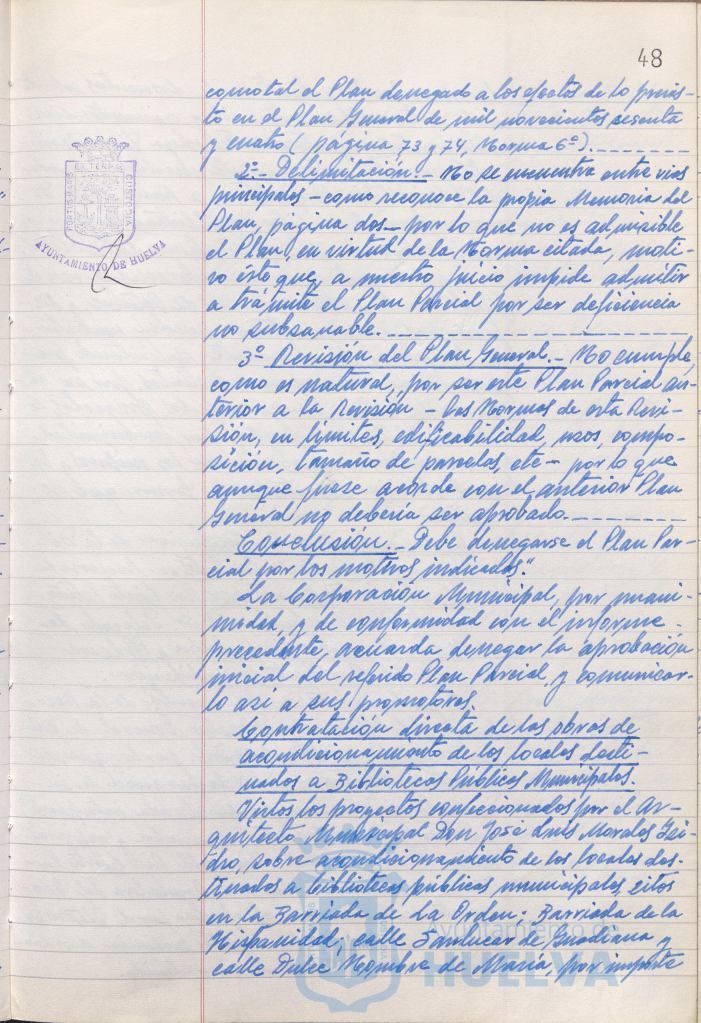 48
como tal el Plan denegado a los efectos de lo previs-
to en el Plan General de mil novecientos sesenta
y cuatro ( página 73 y 74, Norma 6ª).
2º.- Delimitación.- No se encuentra entre vías
principales - como reconoce la propia Memoria del
Plan, página dos - por lo que no es admisible
el Plan, en virtud de la Norma citada, moti-
vo éste que, a nuestro juicio impide admitir
a trámite el Plan Parcial por ser deficiencia
no subsanable.
3º Revisión del Plan General.- No cumple,
como es natural, por ser este Plan Parcial an-
terior a la Revisión - las Normas de esta Revi-
sión, en límites, edificabilidad, usos, compo-
sición, tamaño de parcelas, etc - por lo que
aunque fuese acorde con el anterior Plan
General no debería ser aprobado.
Conclusión.- Debe denegarse el Plan Par-
cial por los motivos indicados."
La Corporación Municipal, por unani-
midad, y de conformidad con el informe
precedente, acuerda denegar la aprobación
inicial del referido Plan Parcial, y comunicar-
lo así a sus promotores.
Contratación directa de las obras de
acondicionamiento de los locales desti-
nados a Bibliotecas Públicas Municipales.
Vistos los proyectos confeccionados por el Ar-
quitecto Municipal Don José Luis Morales
dro, sobre acondicionamiento de los locales des-
tinados a bibliotecas públicas municipales, sitos
en la Barriada de La Orden; Barriada de la
Hispanidad, calle Sanlucar de Guadiana y
calle Dulce Nombre de María, por importe
PORTUS MARIS ET TERRE CUSTODIA
AYUNTAMIENTO DE HUELVA
Ayuntamiento de
HUELVA